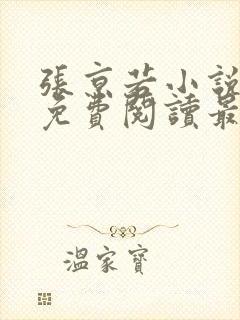 張京若小說
免費閱讀最
溫家寶